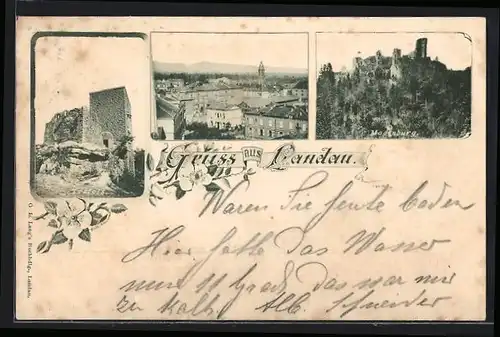 Madenburg.
Gruss aus Landau.
Waren Sie heute baden
Hier hatte das Wasser
nur 11 Grad, das war mir
zu kalt. Alb. Schneider
G. L. Lang's Buchhdlg., Landau.